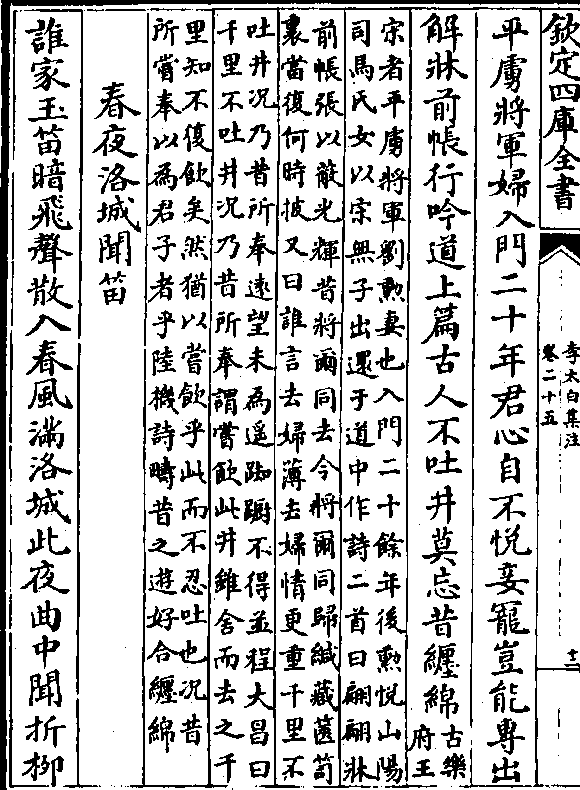 欽定四庫全書
李太白集注
卷二十五
十二
平虜將軍婦入門二十年君心自不悅妾寵豈能專出
解牀前帳行吟道上篇古人不吐井莫忘昔纏綿古樂
府王
宋者平虜將軍劉勲妻也入門二十餘年後勲悅山陽
司馬氏女以宋無子出還于道中作詩二首曰翩翩牀
前帳張以蔽光輝昔將爾同去今將爾同歸緘藏篋笥
裏當復何時披又曰誰言去婦薄去婦情更重千里不
吐井况乃昔所奉遠望未為遥踟蹰不得並程大昌曰
千里不吐井况乃昔所奉謂嘗飲此井雖舍而去之千
里知不復飲矣然猶以嘗飲乎此而不忍吐也况昔
所嘗奉以為君子者乎陸機詩疇昔之遊好合纏綿
春夜洛城聞笛
誰家玉笛暗飛聲散入春風滿洛城此夜曲中聞折柳